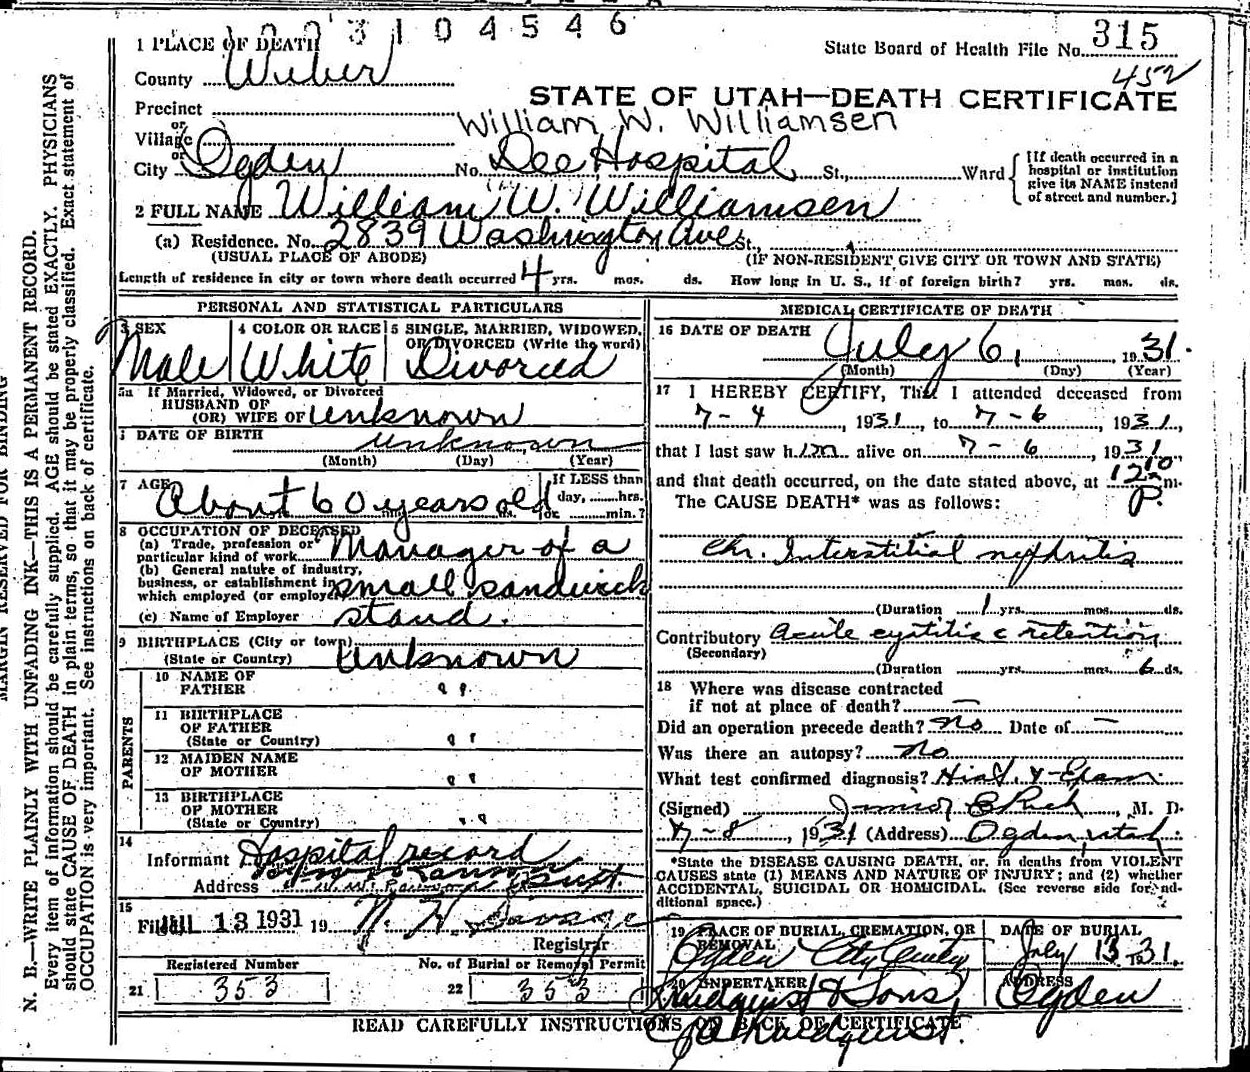 003104546
1 PLACE OF DEATH
State Board of Health File No. 315
County Weber
452
STATE OF UTAH—DEATH CERTIFICATE
Precinct
William W. Williamsen
or
Village
or
City Ogden No. Dee Hospital St., Ward
[If death occurred in a
hospital or institution
give its NAME instead
of street and number.]
2 FULL NAME William W. Williamsen
(a) Residence. No. 2839 Washington Ave St.,
(USUAL PLACE OF ABODE) (IF NON-RESIDENT GIVE CITY OR TOWN AND STATE)
Length of residence in city or town where death occurred 4 yrs. mos. ds. How long in U. S., if of foreign birth? yrs. mos. ds.
PERSONAL AND STATISTICAL PARTICULARS
3 SEX
Male
4 COLOR OR RACE
White
5 SINGLE, MARRIED, WIDOWED,
OR DIVORCED (Write the word)
Divorced
5a If Married, Widowed, or Divorced
HUSBAND OF
(OR) WIFE OF unknown
DATE OF BIRTH unknown
(Month) (Day) (Year)
7 AGE About 60 years old
If LESS than
day, hrs.
or min.?
8 OCCUPATION OF DECEASED
(a) Trade, profession or
particular kind of work Manager of a
(b) General nature of industry,
business, or establishment in
which employed (or employer) small sandwich
(c) Name of Employer stand.
9 BIRTHPLACE (City or town)
(State or Country) Unknown
PARENTS
10 NAME OF
FATHER " "
11 BIRTHPLACE
OF FATHER
(State or Country) " "
12 MAIDEN NAME
OF MOTHER " "
13 BIRTHPLACE
OF MOTHER
(State or Country) " "
14
Informant Hospital record
Address Supt.
15
Filed JUL 13 1931 19
Registrar
Registered Number
21 353
No. of Burial or Removal Permit
22 353
MEDICAL CERTIFICATE OF DEATH
16 DATE OF DEATH July 6, 1931.
(Month) (Day) (Year)
17 I HEREBY CERTIFY, That I attended deceased from
7-4, 1931, to 7-6, 1931,
that I last saw him alive on 7-6, 1931
and that death occurred, on the date stated above, at 12 10 P. m.
The CAUSE DEATH* was as follows:
Chr. Interstitial nephritis
(Duration 1 yrs. mos. ds.
Contributory Acute cystitis c retention
(Secondary)
(Duration yrs. mos. 6 ds.
18 Where was disease contracted
if not at place of death? —
Did an operation precede death? No Date of —
Was there an autopsy? No
What test confirmed diagnosis? Hist. & Exam
(Signed) Junior E Rich, M. D.
7-8, 1931 (Address) Ogden, Utah.
*State the DISEASE CAUSING DEATH, or, in deaths from VIOLENT
CAUSES state (1) MEANS AND NATURE OF INJURY; and (2) whether
ACCIDENTAL, SUICIDAL OR HOMICIDAL. (See reverse side for ad-
ditional space.)
19 PLACE OF BURIAL, CREMATION, OR
REMOVAL
Ogden City
DATE OF BURIAL
July 13 1931.
20 UNDERTAKER
Lindquist & Sons
ADDRESS
Ogden
READ CAREFULLY INSTRUCTIONS ON BACK OF CERTIFICATE
Lindquist.
MARGIN RESERVED FOR BINDING
N. B.—WRITE PLAINLY WITH UNFADING INK—THIS IS A PERMANENT RECORD.
Every item of information should be carefully supplied. AGE should be stated EXACTLY. PHYSICIANS
should state CAUSE OF DEATH in plain terms, so that it may be properly classified. Exact statement of
OCCUPATION is very important. See instructions on back of certificate.